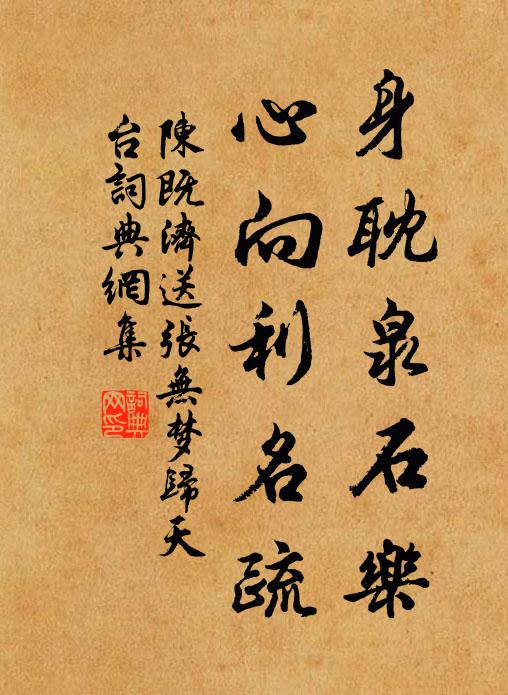 身耽泉石樂
心向利名疏
陳既濟送張無梦歸天
台詞典網集
詞典
网印